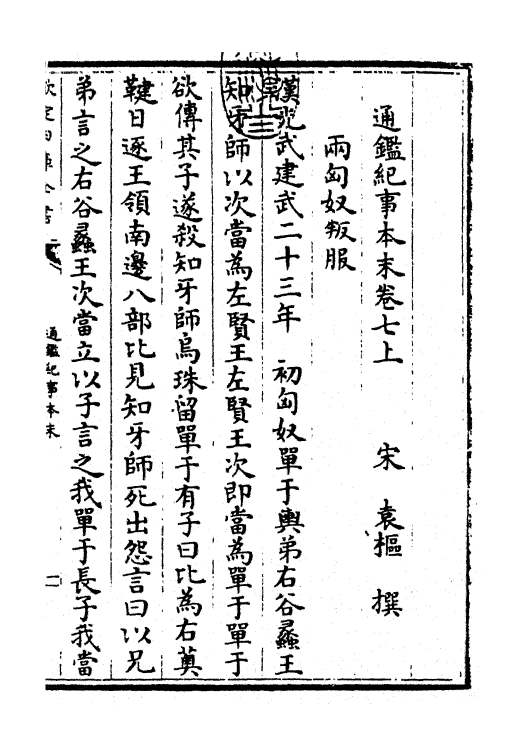 通鑑紀事本末卷七上　宋　袁樞　撰
兩匈奴叛服
漢光武建武二十三年　初匈奴單于輿弟右谷蠡王
知牙師以次當為左賢王左賢王次即當為單于單于
欲傳其子遂殺知牙師烏珠留單于有子曰比為右薁
鞬日逐王領南邊八部比見知牙師死出怨言曰以兄
弟言之右谷蠡王次當立以子言之我單于長子我當
欽定四庫全書
通鑑紀事本末